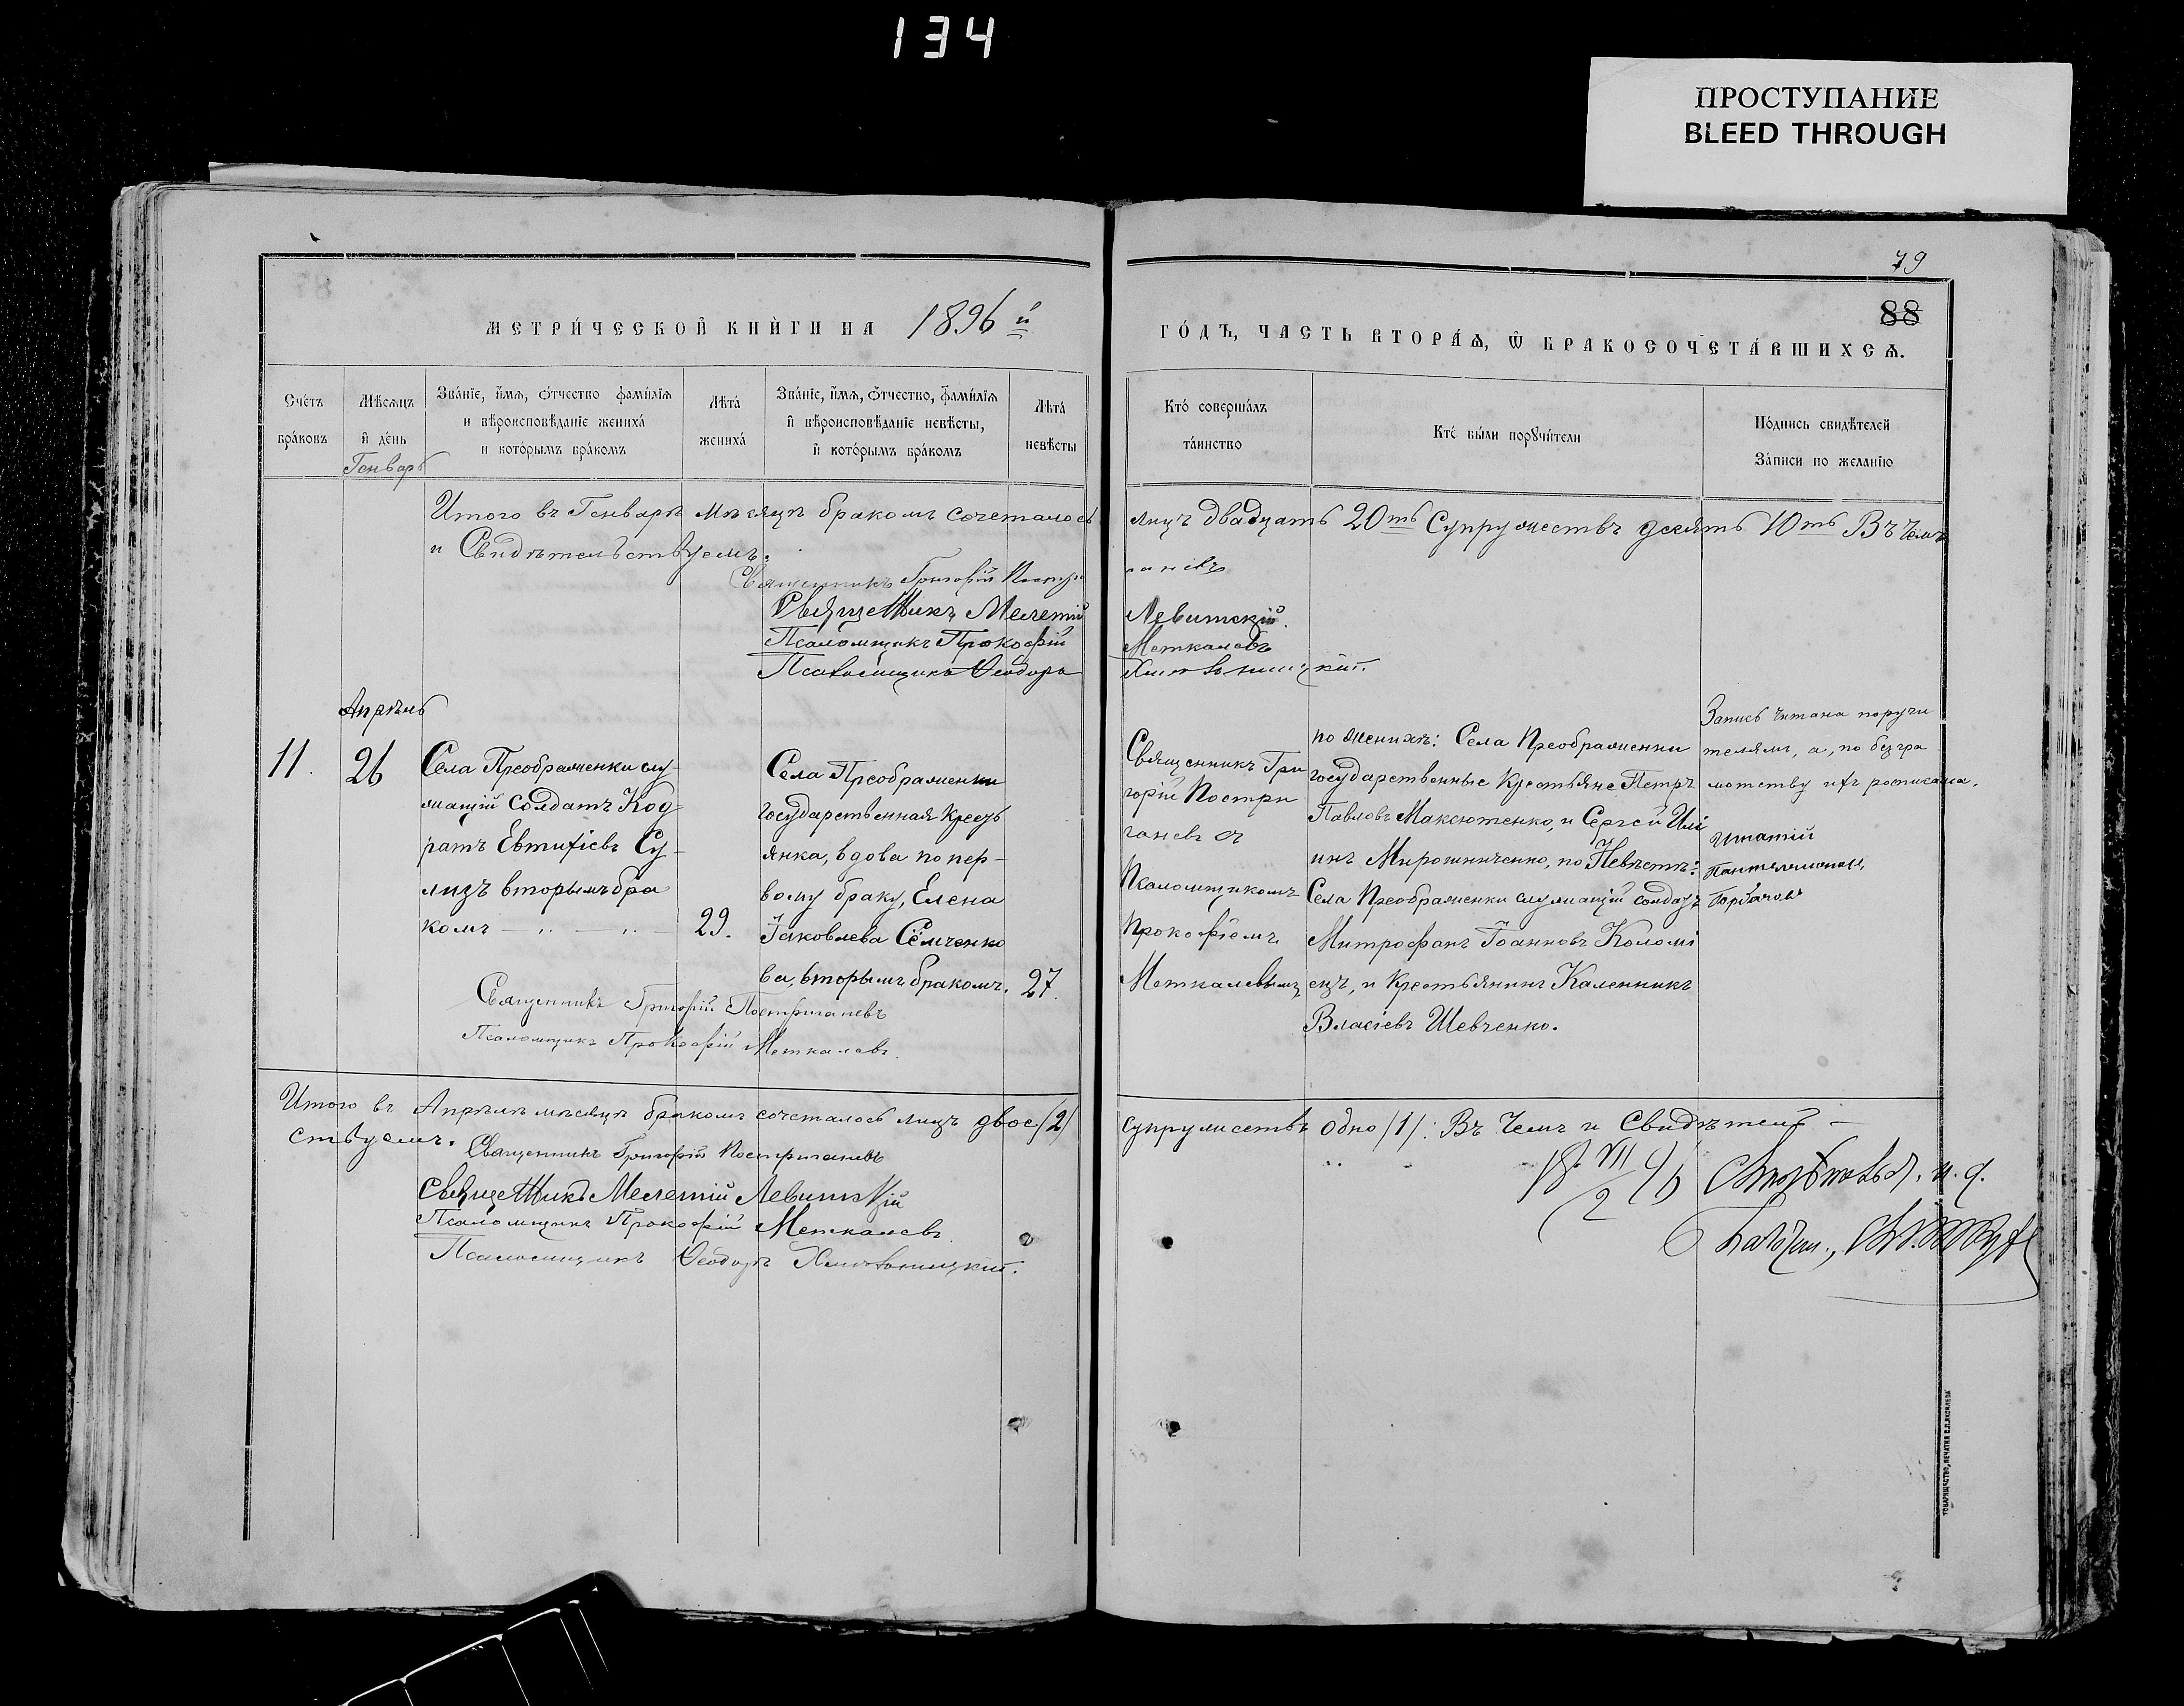 134
ПРОСТУПАНИЕ
BLEED THROUGH
79
88
МЕТРИ́ЧЕСКОЙ КНИ́ГИ НА 1896 й
ГО́ДЪ, ЧАСТЬ ВТОРА́Ѧ, Ѡ БРАКОСОЧЕТА́ВШИХСѦ.
Сче́тъ бра́ковъ
Мѣ́сѧцъ и де́нь
Генварь
Зва́нїе, и́мѧ, ѻ́тчество фами́лїѧ и вѣроисповѣ́данїе жениха́ и кото́рымъ бра́комъ
Лѣта́ жениха́
Зва́нїе, и́мѧ, ѻ́тчество, фами́лїѧ и вѣроисповѣ́данїе невѣ́сты, и кото́рымъ бра́комъ
Лѣта́ невѣ́сты
Кто́ соверша́лъ та́инство
Кто́ бы́ли порꙋчи́тели
По́дпись свидѣ́телей За́писи по жела́нїю
Итого въ Генварѣ мѣсяцѣ бракомъ сочеталось лицъ двадцать 20ть Супружествъ десять 10ть Въ чемъ
и Свидѣтельствуемъ.
Священникъ Григорій Постриганевъ
Священникъ Мелетій Левитскій.
Псаломщикъ Прокофій Меткалевъ
Псаломщикъ Ѳеодоръ
Апрѣль
11.
26
Села Преображенки слу-
жащій солдатъ Код-
ратъ Евтифіевъ Су-
лизъ вторымъ бра
комъ
29.
Села Преображенки
государственная кресть
янка, вдова по пер-
вому браку, Елена
Іаковлева Сёмченко
ва, вторымъ бракомъ.
27.
Священникъ Гри
горій Постри
ганевъ съ
Псаломщикомъ
Прокофіемъ
Меткалевымъ
по женихѣ: Села Преображенки
государственные крестьяне Петръ
Павловъ Максютенко, и Сергей Илі
инъ Мирошниченко, по Невѣстѣ:
Села Преображенки служащій солдатъ
Митрофанъ Іоанновъ Коломі
ецъ, и крестьянинъ Каленникъ
Власіевъ Шевченко.
Запись читана поручи
телямъ, а, по безгра
мотству ихъ росписался.
Ипатій
Пантелимоновъ
Горбачовъ
Священникъ Григорій Постриганевъ
Псаломщикъ Прокофій Меткалевъ.
Итого въ Апрѣлѣ мѣсяцѣ бракомъ сочеталось лицъ двое /2/ супружество одно /1/: Въ чемъ и Свидѣтель-
ствуемъ.
Священникъ Григорій Постриганевъ
Священникъ Мелетій Левитскій
Псаломщикъ Прокофій Меткалевъ
Псаломщикъ Ѳеодоръ
ТОВАРИЩЕСТВО „ПЕЧАТНЯ С.П. ЯКОВЛЕВА"